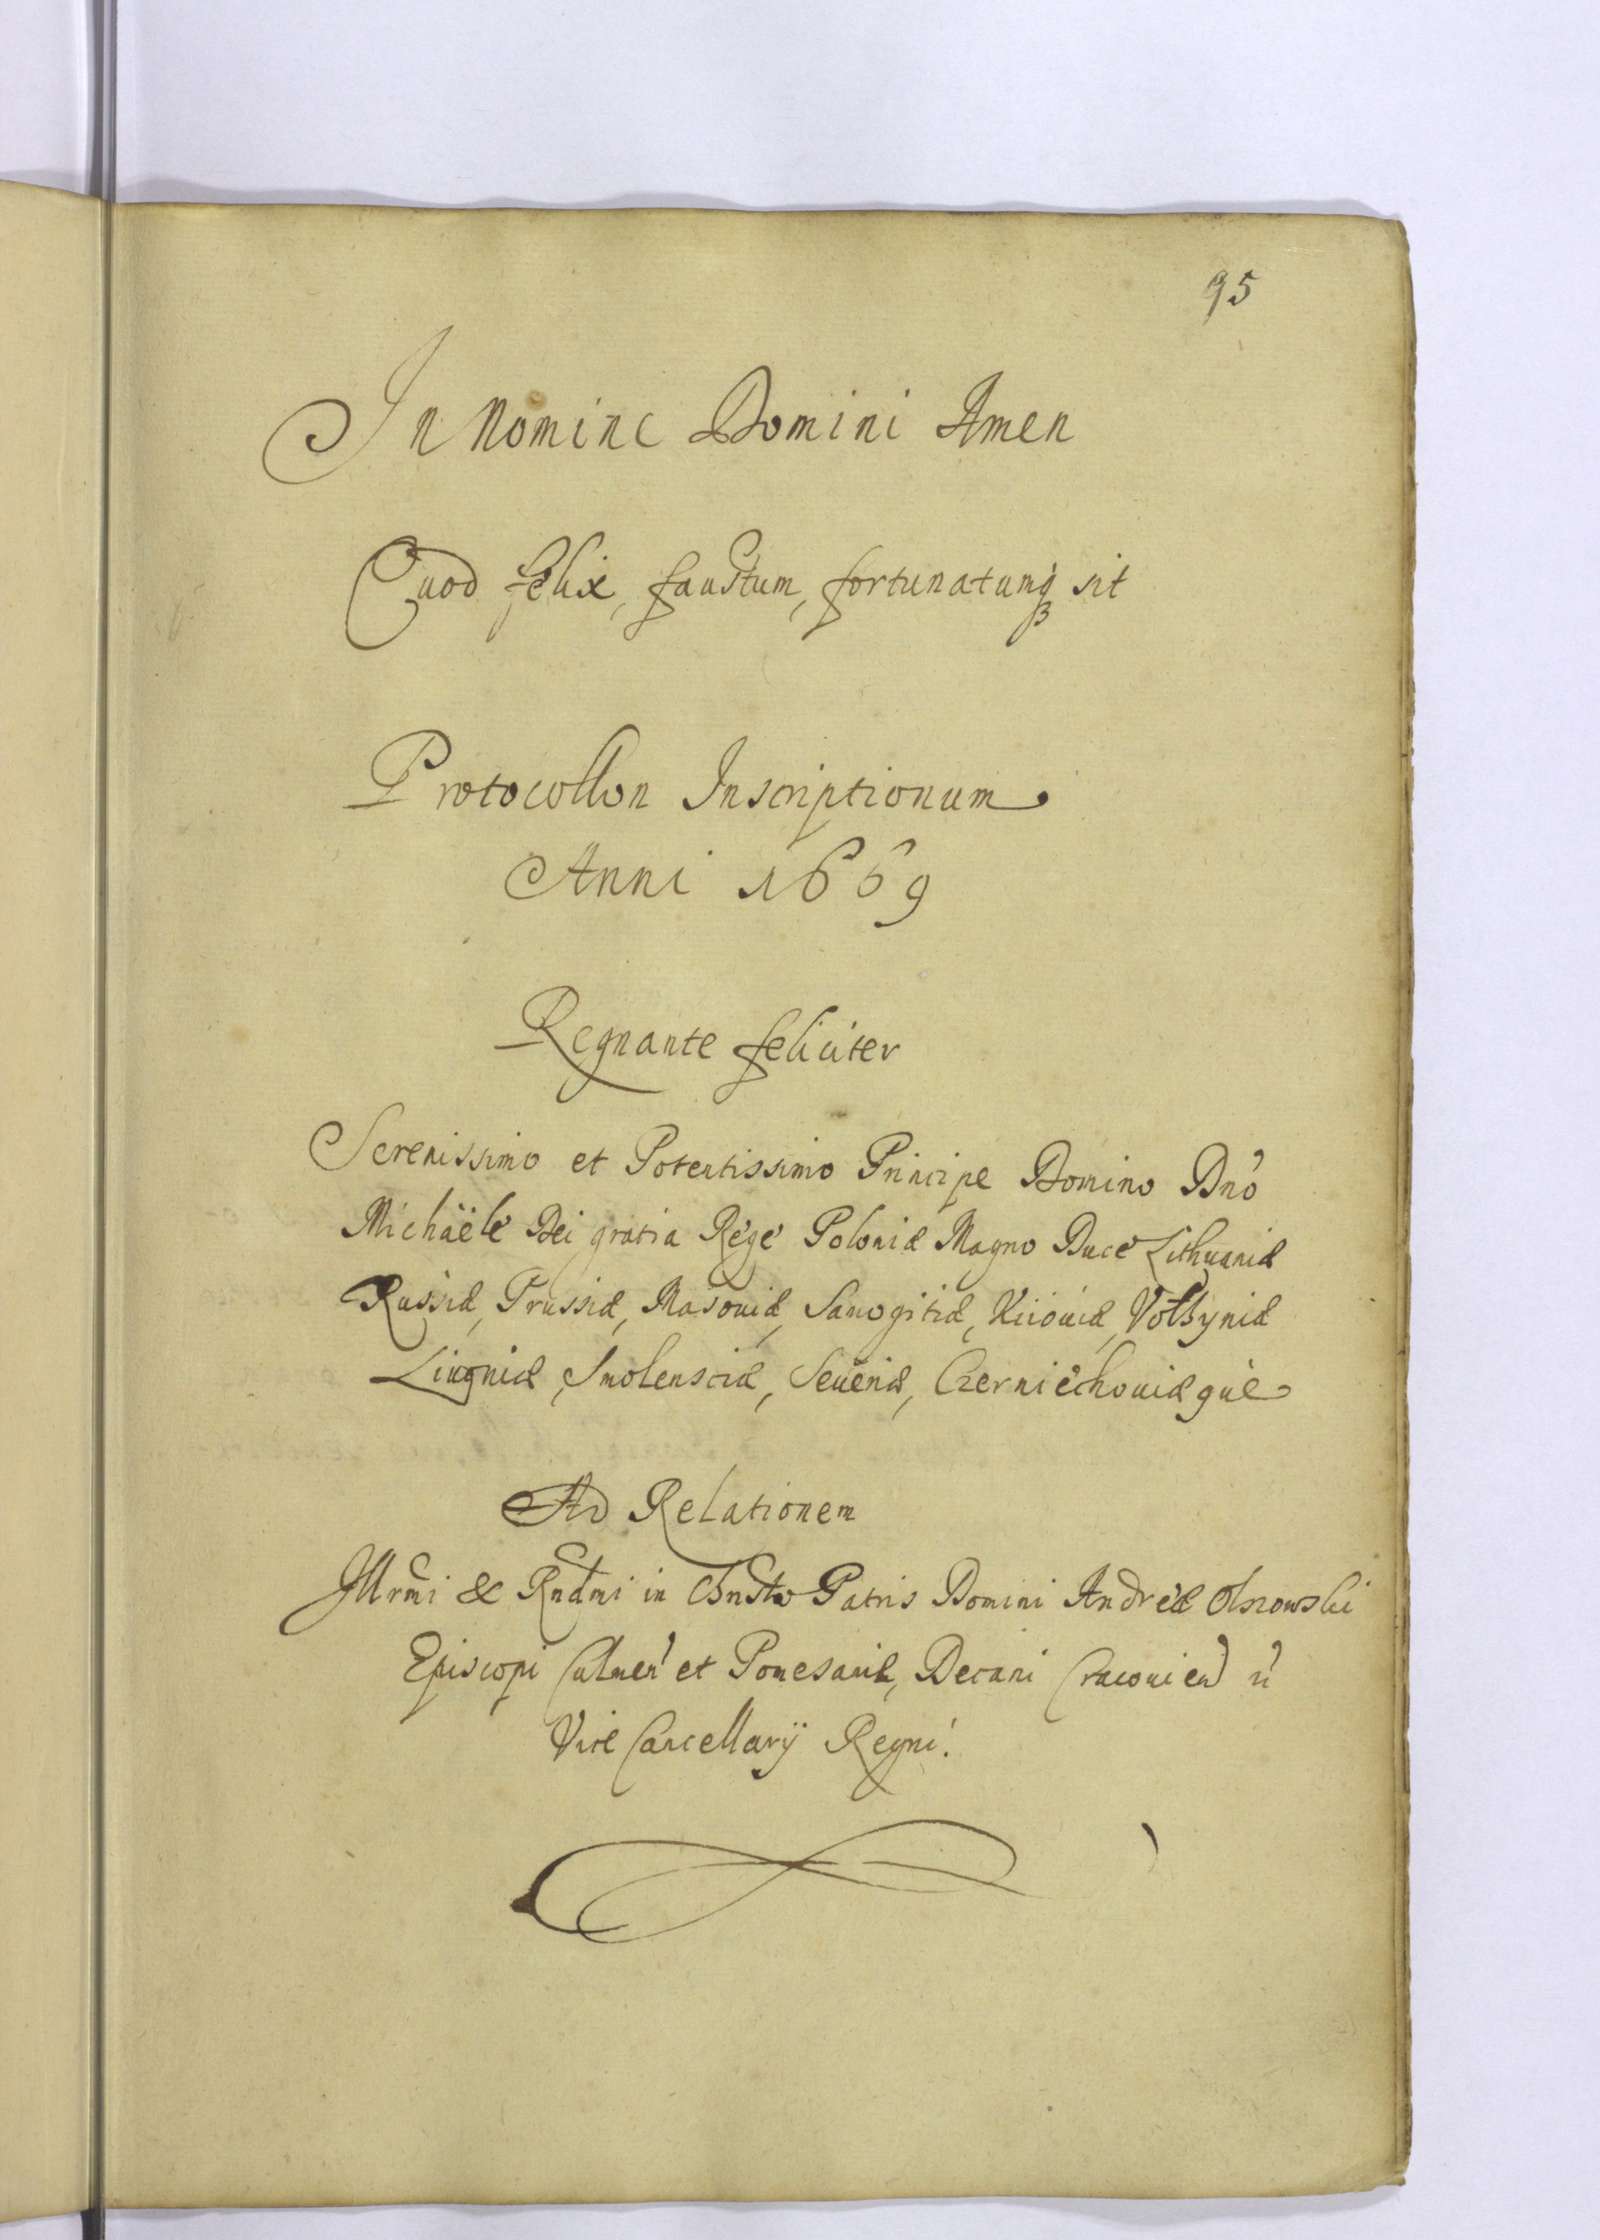 95
In Nomine Domini Amen
Quod felix, faustum, fortunatumq3 sit
Protocollon Inscriptionum
Anni 1669
Regnante feliciter
Serenissimo et Potentissimo Principe Domino Dno
Michäele Dei gratia Rege Poloniæ Magno Duce Lithuaniæ
Russiæ, Prussiæ, Masouiæ, Samogitiæ, Kiiouiæ, Volhyniæ
Liuoniæ, Smolensciæ, Seueriæ, Czerniechouiæque
Ad Relationem
Illrmi & Rndmi in Christo Patris Domini Andreæ Olszowski
Episcopi Culmen et Pomesaniæ, Decani Cracouien
Vice Cancellarÿ Regni.